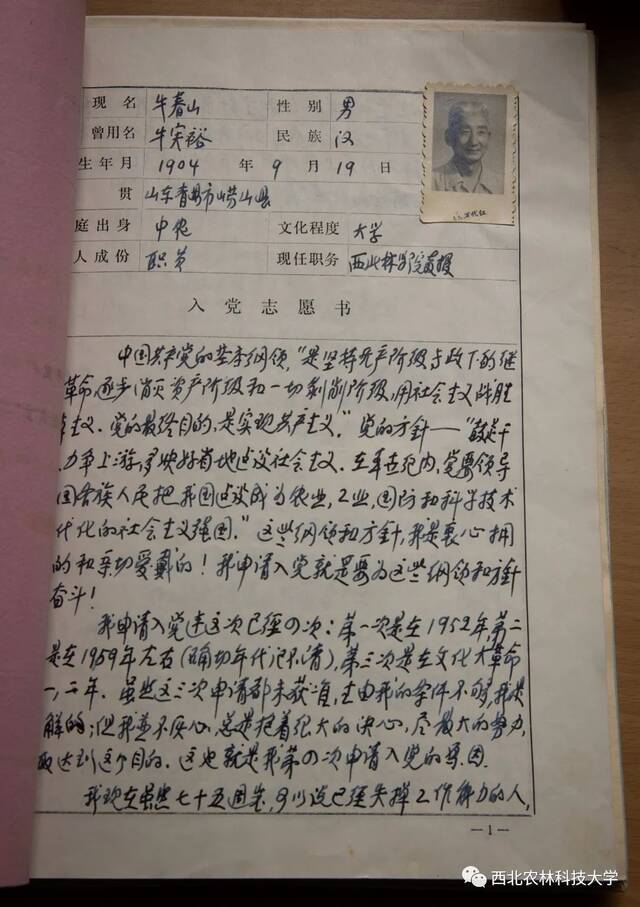 现名 牛春山 性别 男
曾用名 牛实裕 民族 汉
生年月 1904 年 9 月 19 日
贯 山东青岛市崂山县
庭出身 中农 文化程度 大学
人成份 职员 现任职务 西北林学院
入党志愿书
中国共产党的基本纲领，“是坚持无产阶级专政下的继
革命逐步消灭资产阶级和一切剥削阶级，用社会主义战胜
主义．党的最终目的，是实现共产主义．”党的方针——“鼓足干
力争上游，多快好省地建设社会主义．在本世纪内，党要领导
国各族人民把我国建设成为农业，工业，国防和科学技术
代化的社会主义强国．”这些纲领和方针，我是衷心拥
的和亲切爱戴的！我申请入党就是要为这些纲领和方针
奋斗！
我申请入党连这次已经四次：第一次是在1952年，第二
是在1959年左右（确切年代记不清），第三次是在文化大革命
一，二年．虽然这三次申请都未获准，主由我的条件不够，我是
解的；但我并不灰心，总是抱着很大的决心，尽最大的努力，
达到这个目的．这也就是我第四次申请入党的原因．
我现在虽然七十五周岁，可以说已经失掉工作能力的人，
—1—
西北农林科技大学